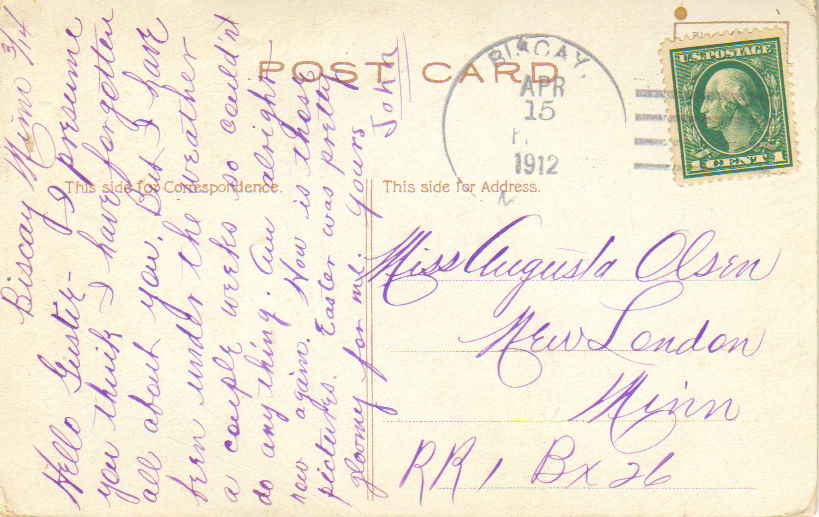 POST CARD
BISCAY,
APR
15
1912
U.S. POSTAGE
1 CENT 1
This side for Correspondence.
This side for Address.
Biscay Minn
Hello Gustie - I presume
you think I have forgotten
all about you. But I have
been under the weather
a couple weeks so could'nt
do any thing. Am alright
now again. How is those
pictures. Easter was pretty
gloomy for me. Yours
John
Miss Augusta Olsen
New London
Minn
RR 1 Bx 26